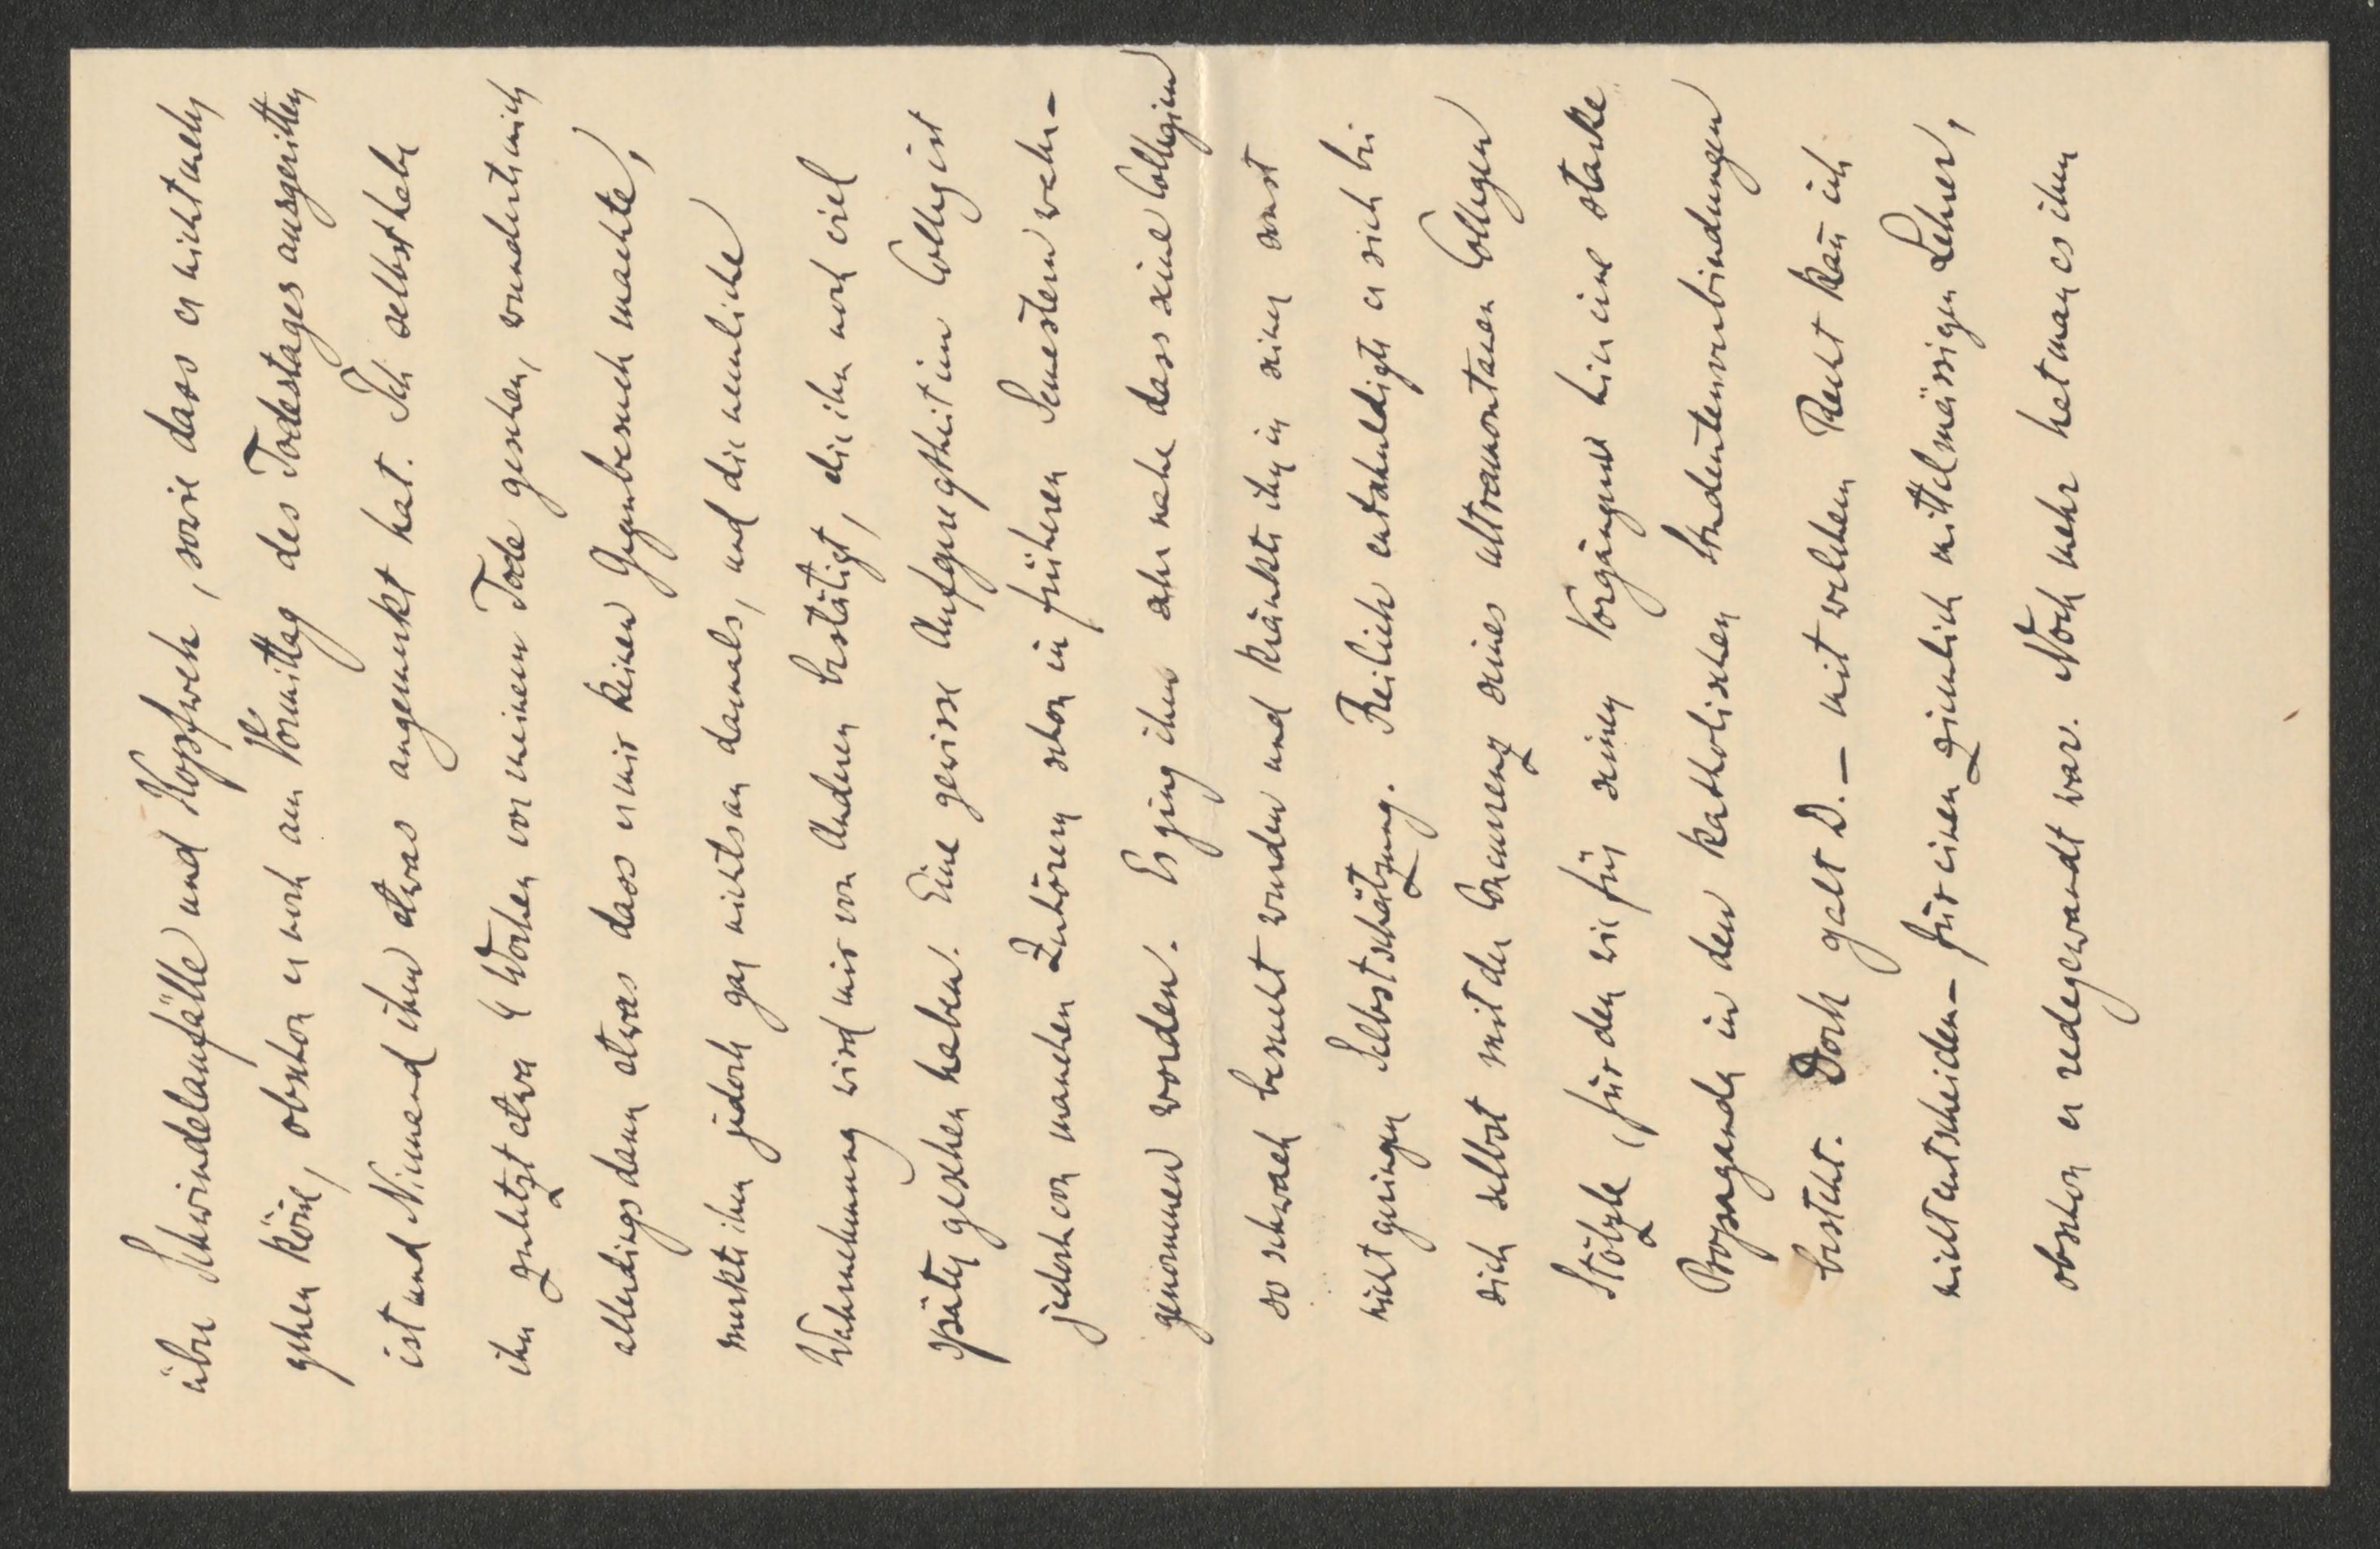 über Schwindelanfälle und Kopfweh, sowie dass er nicht mehr
gehen kön̄e, obschon er noch am Vormittag des Todestages ausgeritten
ist und Niemand ihm etwas angemerkt hat. Ich selbst habe
ihn zuletzt etwa 4 Wochen vor meinem Tode gesehen, wunderte mich
allerdings dann etwas dass er mir keinen Gegenbesuch machte,
merkte ihm jedoch gar nichts an damals, und die nemliche
Wahrnehmung wird mir von Anderen bestätigt, die ihn noch viel
später gesehen haben. Eine gewisse Aufgeregtheit im Colleg ist
jedoch von manchen Zuhörern schon in früheren Semestern wahr-
genommen worden. Es ging ihm sehr nahe dass seine Collegien
so schwach besucht wurden und kränkte ihn in seiner sonst
nicht geringen Selbstschätzung. Freilich entschuldigte er sich bei
sich selbst mit der Concurrenz seines ultramontanen Collegen
Stölzle, für den wie für seinen Vorgänger hier eine starke
Propaganda in den katholischen Studentenverbindungen
besteht. Doch galt D. – mit welchem Recht kan̄ ich
nicht entscheiden – für einen ziemlich mittelmässigen Lehrer,
obschon er redegewandt war. Noch mehr hat man es ihm